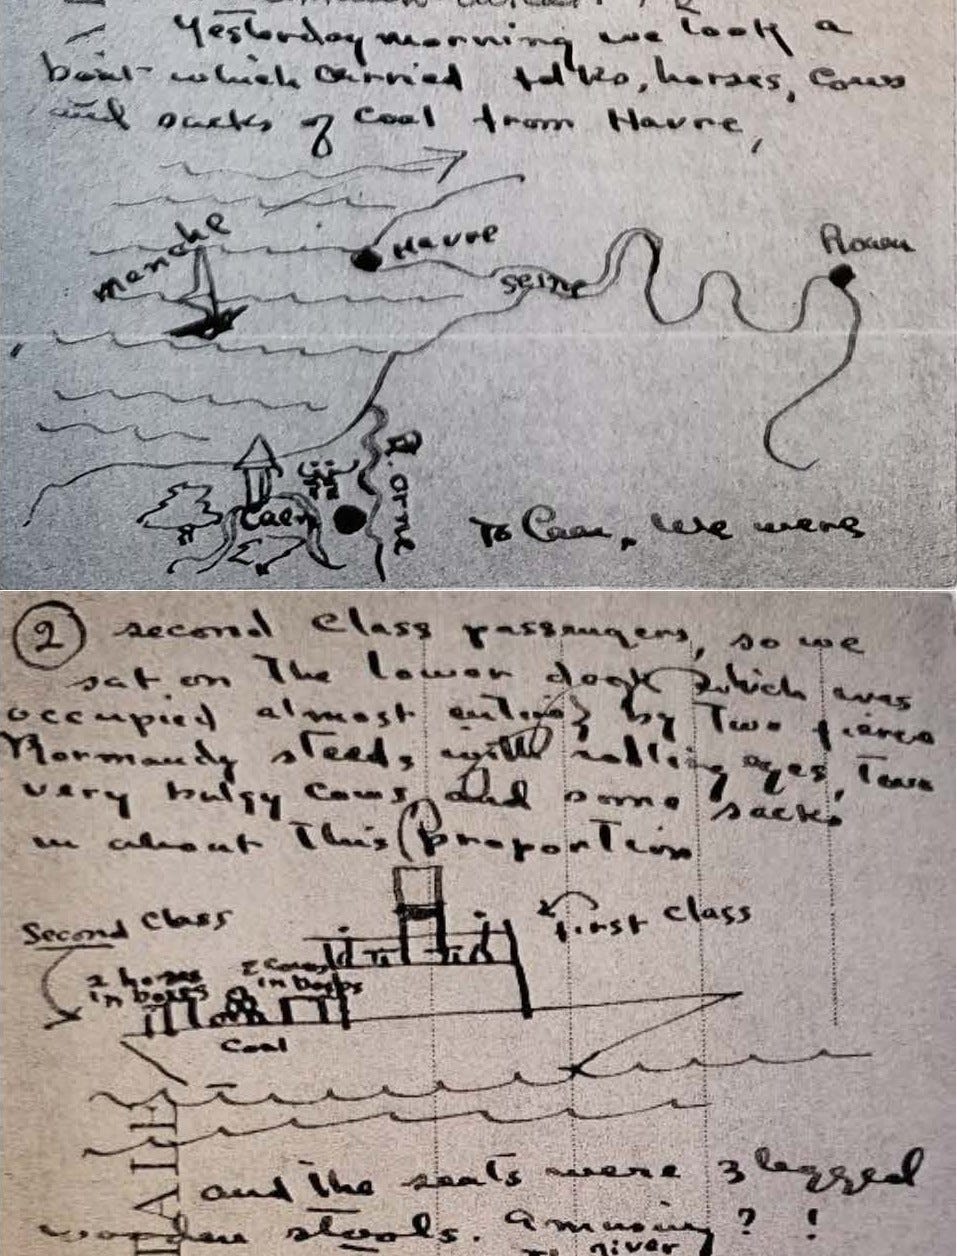 Yesterday morning we took a
boat which carried folks, horses, cows
and sacks of coal from Havre,
Manche
Havre
Seine
Rouen
R. Orne
Caen
To Caen, we were
2 second class passengers, so we
sat on the lower deck which was
occupied almost entirely by two fierce
Normandy steeds with rolling eyes, two
very bulgy cows and some sacks
in about this proportion
Second class
first class
2 horses
in boxes
2 cows
in boxes
coal
and the seats were 3 legged
wooden stools. Amusing? !
river